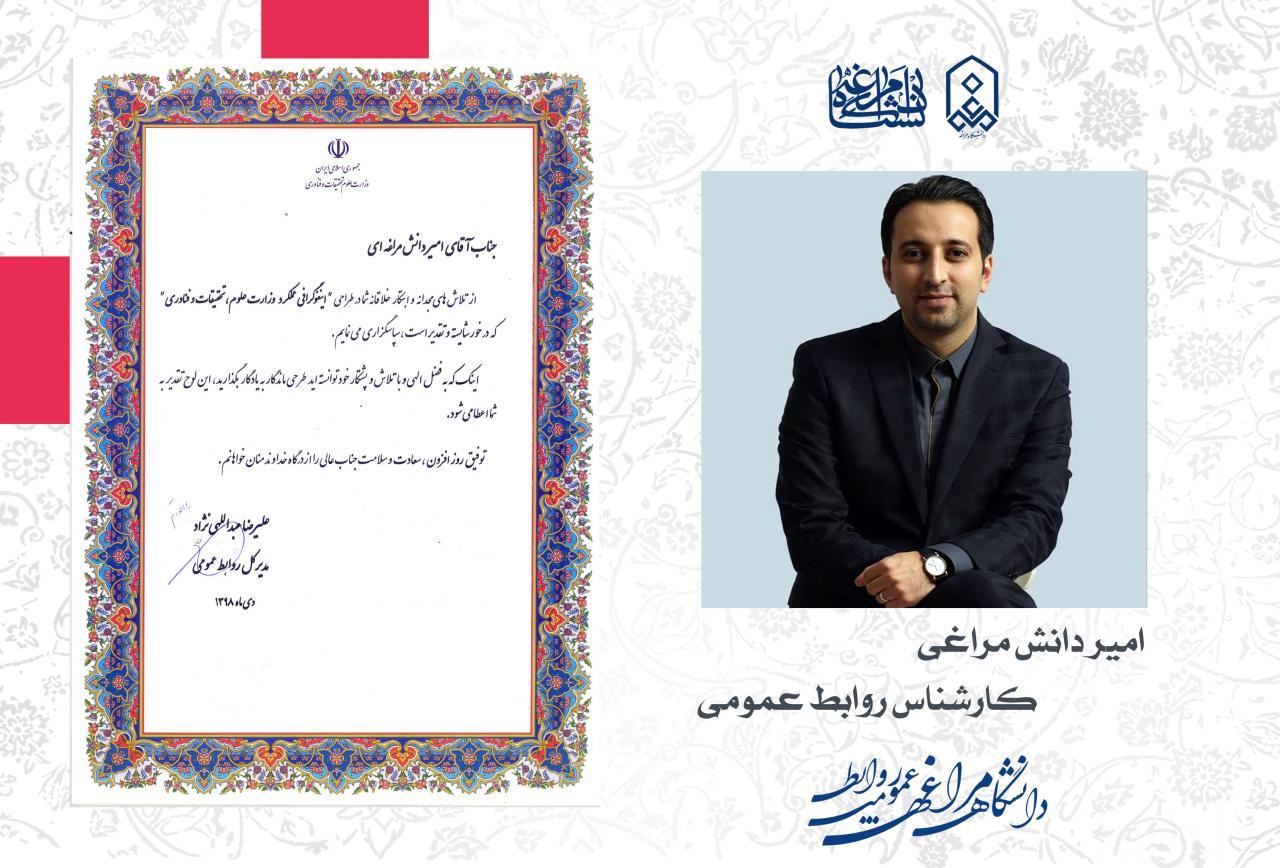 جمهوری اسلامی ایران
وزارت علوم تحقیقات و فناوری
جناب آقای امیر دانش مراغه ای
از تلاش های مجدانه و ابتکار خلاقانه شما در طراحی "اینفوگرافی عملکرد وزارت علوم، تحقیقات و فناوری"
که در خور شایسته و تقدیر است، سپاسگزاری می نمایم.
اینک که به فضل الهی و با تلاش و پشتکار خود توانسته اید طرحی ماندگار به یادگار بگذارید، این لوح تقدیر به
شما اعطا می شود.
توفیق روز افزون، سعادت و سلامت جناب عالی را از درگاه خداوند منان خواهانم.
با احترام
علیرضا عبداللهی نژاد
مدیر کل روابط عمومی
دی ماه ۱۳۹۸
دانشگاه مراغه
دانشگاه مراغه
امیر دانش مراغی
کارشناس روابط عمومی
روابط عمومی دانشگاه مراغه